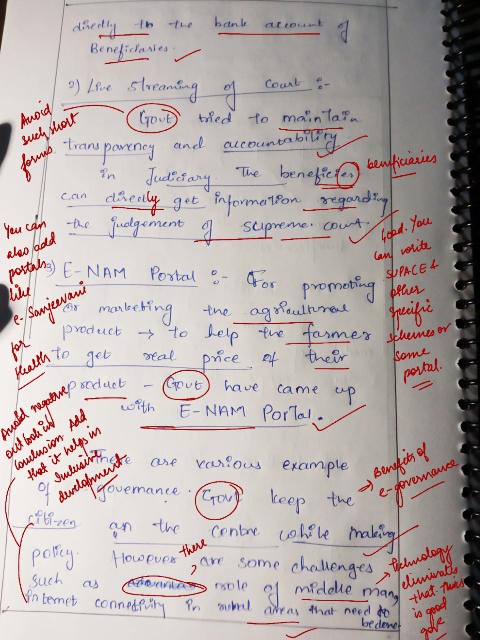 directly to the bank account of
Beneficiaries.
2) Live streaming of court :-
Govt tried to maintain
transparency and accountability
in Judiciary. The beneficies
can directly get information regarding
the judgement of supreme court.
3) E-NAM Portal :- For promoting
or marketing the agricultural
product → to help the farmer
to get real price of their
product - Govt have came up
with E-NAM Portal.
There are various example
of governance. Govt keep the
citizen on the centre while making
policy. However there are some challenges
such as role of middle man,
Internet connectivity in rural areas that need to be done
Avoid
such short
forms.
beneficiaries
You can
also add
portals
like
e-Sanjeevani
for
Health
Good. You
can write
SUPACE &
other
specific
schemes or
some
portal.
Avoid negative
outlook in
conclusion. Add
that it helps in
Inclusive
development
→ Benefits of
e-governance
→ Technology
eliminates
that. This
is good